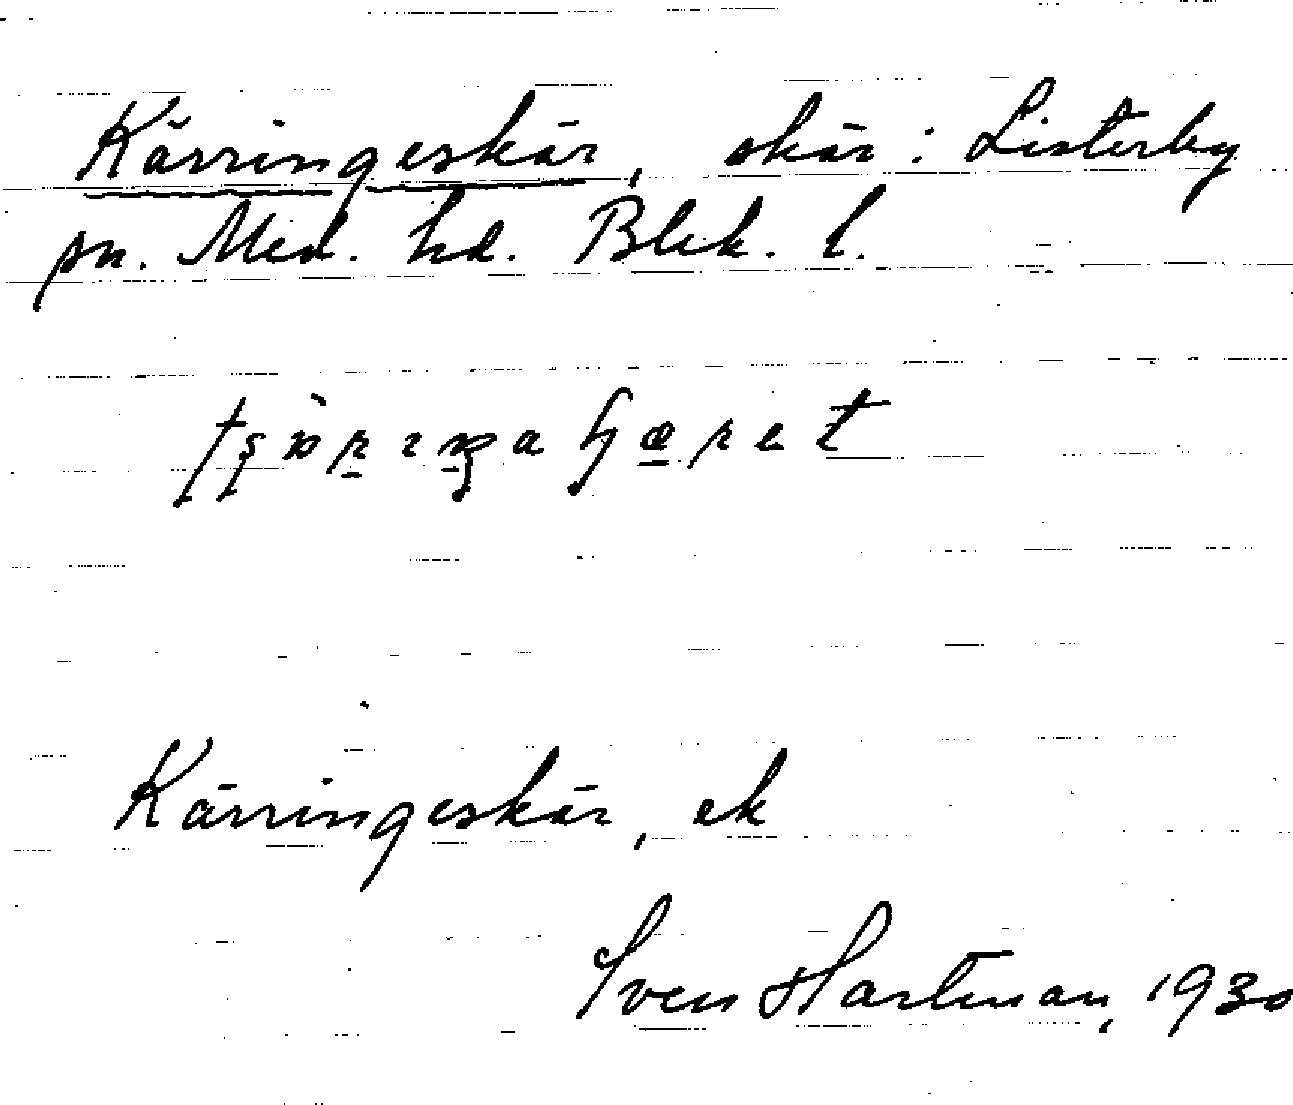 Kärringeskär, skär: Listerby
sn. Med. hd. Blek. l.
Kärringeskär, ek
Sven Hartman, 1930